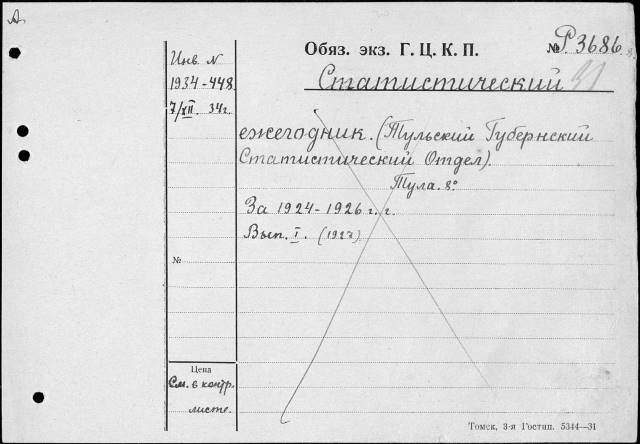 А
Инв. N
1934-448
7/XII. 34г.
Обяз. экз. Г. Ц. К. П.
№ Р 3686
Статистический
ежегодник. (Тульский Губернский
Статистический Отдел).
Тула. 8°
За 1924-1926 г.г.
Вып. I. (1927)
№
Цена
См. в контр.
листе.
Томск, 3-я Гостип. 5344—31